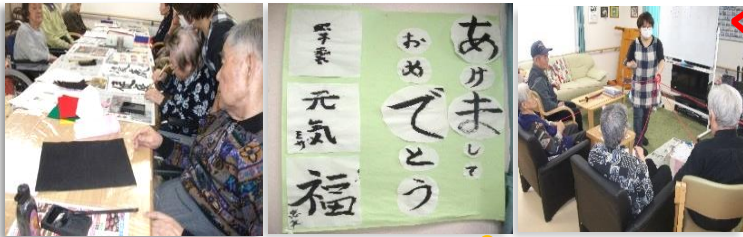 あけまして
おめでとう
元気
福